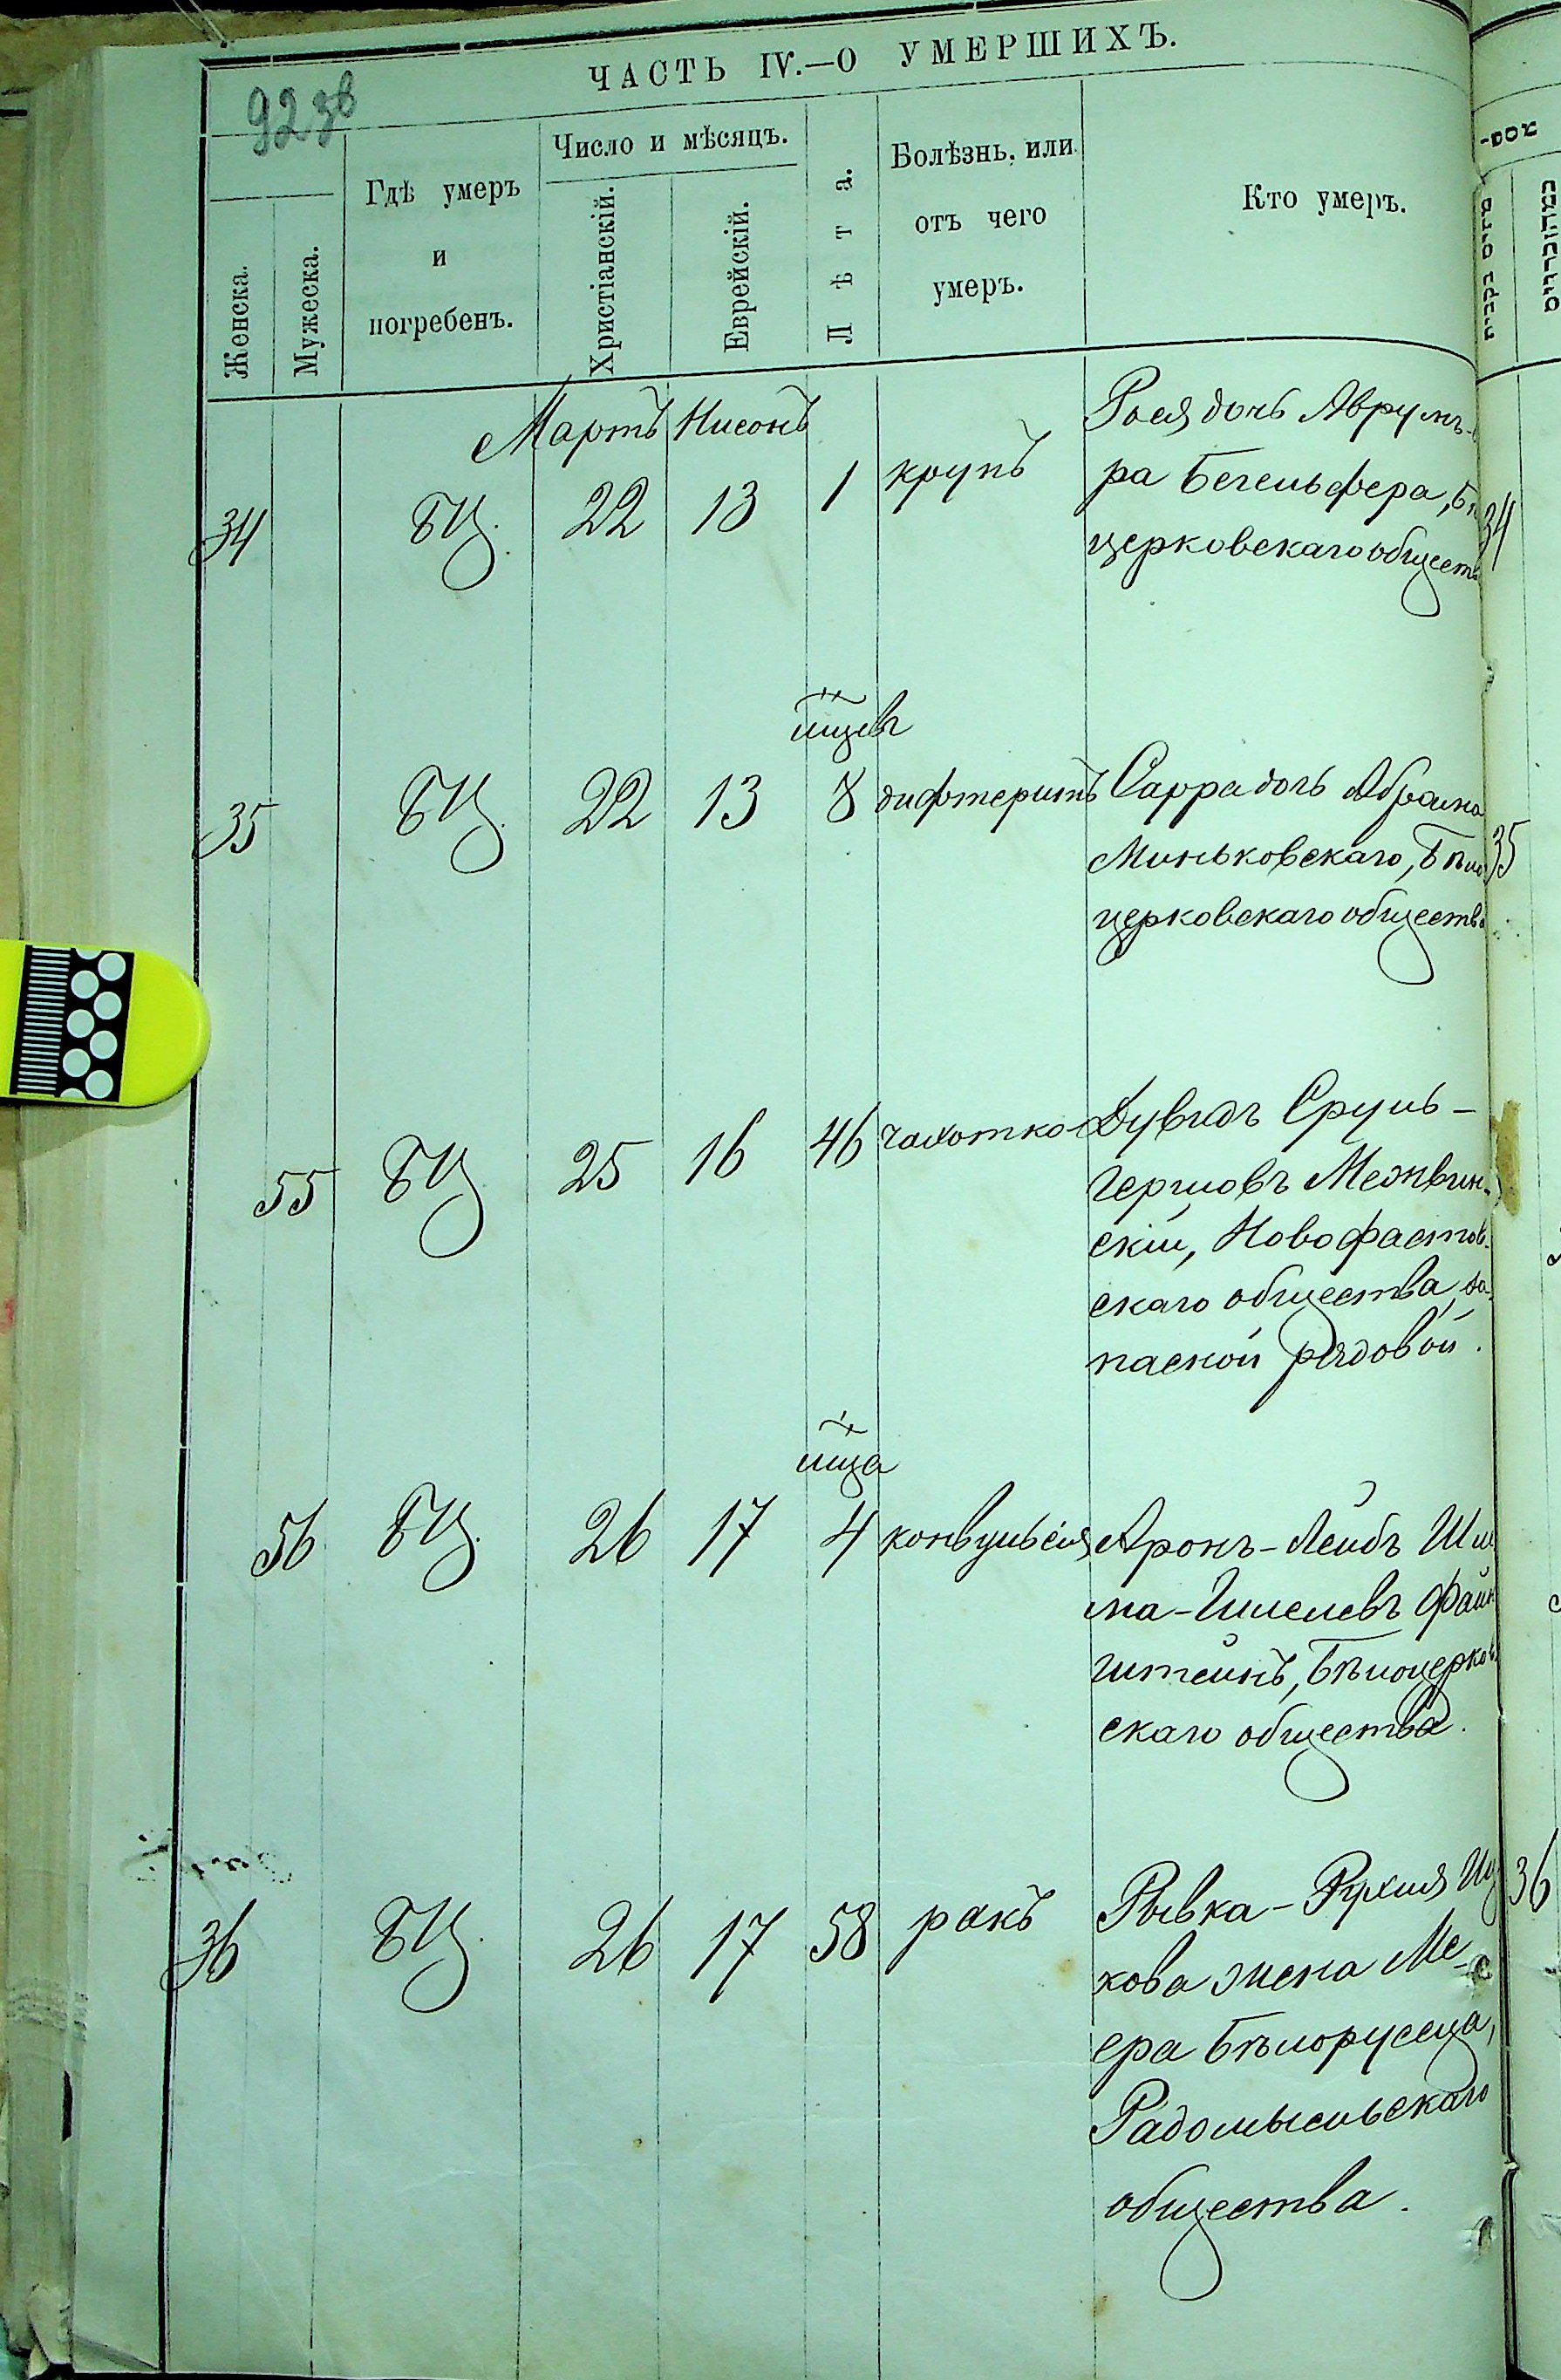 ЧАСТЬ IV.—О УМЕРШИХЪ.
92 зв
Женска.
Мужеска.
Гдѣ умеръ
и
погребенъ.
Число и мѣсяцъ.
Христіанскій.
Еврейскій.
Лѣта.
Болѣзнь, или
отъ чего
умеръ.
Кто умеръ.
Мартъ Нисонъ
34 БЦ. 22 13 1 крупъ
Рося дочь Аврумъ-
ра Бегельфера,
церковскаго обществ
34
мцевъ
35 БЦ. 22 13 8 дифтеритъ
Сарра дочь Абрама
Миньковскаго, Бѣло
церковскаго общества
35
55 БЦ 25 16 46 чахотка
Дувидъ Сруль-
Гершовъ Межвин-
скій, Новофастов-
скаго общества, за-
пасной рядовой.
мца
56 БЦ. 26 17 4 конвульсія
Аронъ-Лейбъ Шл
ма-Гилелевъ Файн
штейнъ, Бѣлоцерков
скаго общества.
36 БЦ. 26 17 58 ракъ
Рывка-Рухля Иц
кова жена Ме-
ера Бѣлорусца,
Радомысльскаго
общества.
36